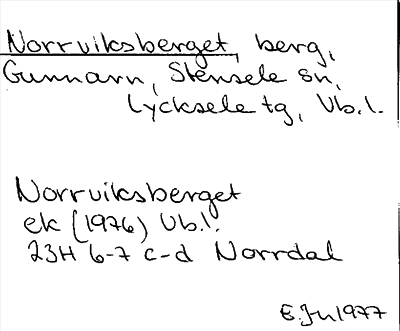 Norrviksberget, berg,
Gunnarn, Stensele sn,
Lycksele tg, Vb.l.
Norrviksberget
ek (1976) Vb.l.
23H 6-7 c-d Norrdal
E.Jn 1977